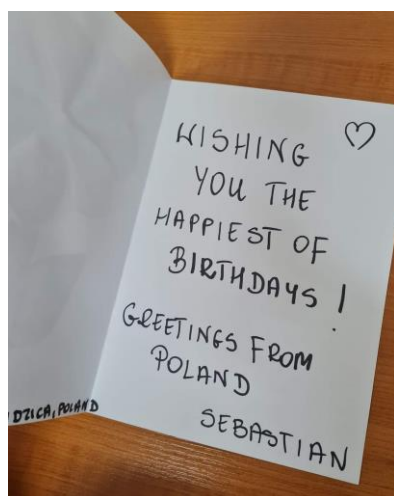 WISHING
YOU THE
HAPPIEST OF
BIRTHDAYS!
GREETINGS FROM
POLAND
SEBASTIAN
DZICA, POLAND